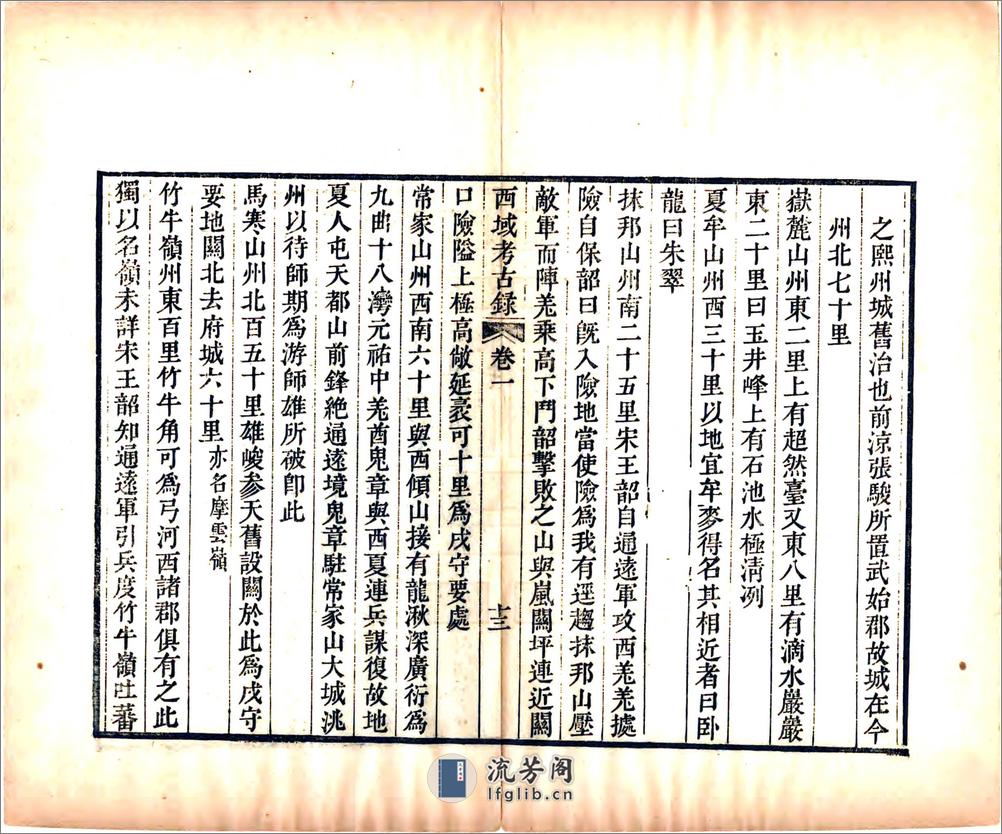 之熙州城舊治也前涼張駿所置武始郡故城在今
州北七十里
嶽麓山州東二里上有超然臺又東八里有滴水巖巖
東二十里曰玉井峰上有石池水極清冽
夏牟山州西三十里以地宜牟麥得名其相近者曰臥
龍曰朱翠
抹邦山州南二十五里宋王韶自通遠軍攻西羌羌據
險自保韶曰旣入險地當使險爲我有逕趨抹邦山壓
敵軍而陣羌乘高下鬥韶擊敗之山與嵐關坪連近關
西域考古録 卷一 十三
口險隘上極高敞延袤可十里爲戍守要處
常家山州西南六十里與西傾山接有龍湫深廣衍爲
九曲十八灣元祐中羌酋鬼章與西夏連兵謀復故地
夏人屯天都山前鋒絶通遠境鬼章駐常家山大城洮
州以待師期爲游師雄所破卽此
馬寒山州北百五十里雄峻參天舊設關於此爲戍守
要地關北去府城六十里亦名摩雲嶺
竹牛嶺州東百里竹牛角可爲弓河西諸郡俱有之此
獨以名嶺未詳宋王韶知通遠軍引兵度竹牛嶺吐蕃
流芳阁
lfglib.cn